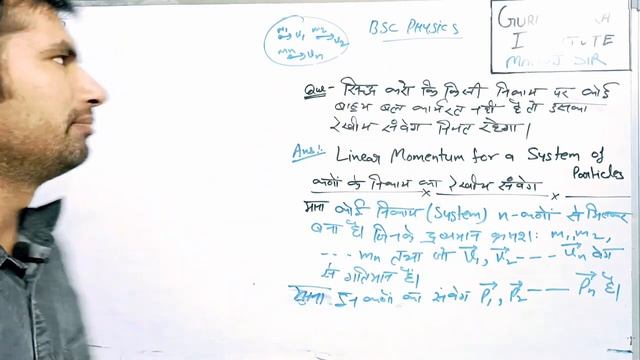 m₁ → v₁ m₂ → v₂
mn → vn
BSC PHYSICS
GURU
I TUTE
MANOJ SIR
Que:- सिद्ध करो कि किसी निकाय पर कोई
बाह्य बल कार्यरत नहीं है तो उसका
रेखीय संवेग नियत रहेगा।
Ans:- Linear Momentum for a System of
Particles
कणों के निकाय का रेखीय संवेग
माना कोई निकाय (System) n-कणों से मिलकर
बना है। जिनके द्रव्यमान क्रमशः m₁, m₂,
---- mn तथा जो v⃗₁, v⃗₂ ---- v⃗n वेग
से गतिमान हैं।
इन कणों का संवेग P⃗₁, P⃗₂ ---- P⃗n है।